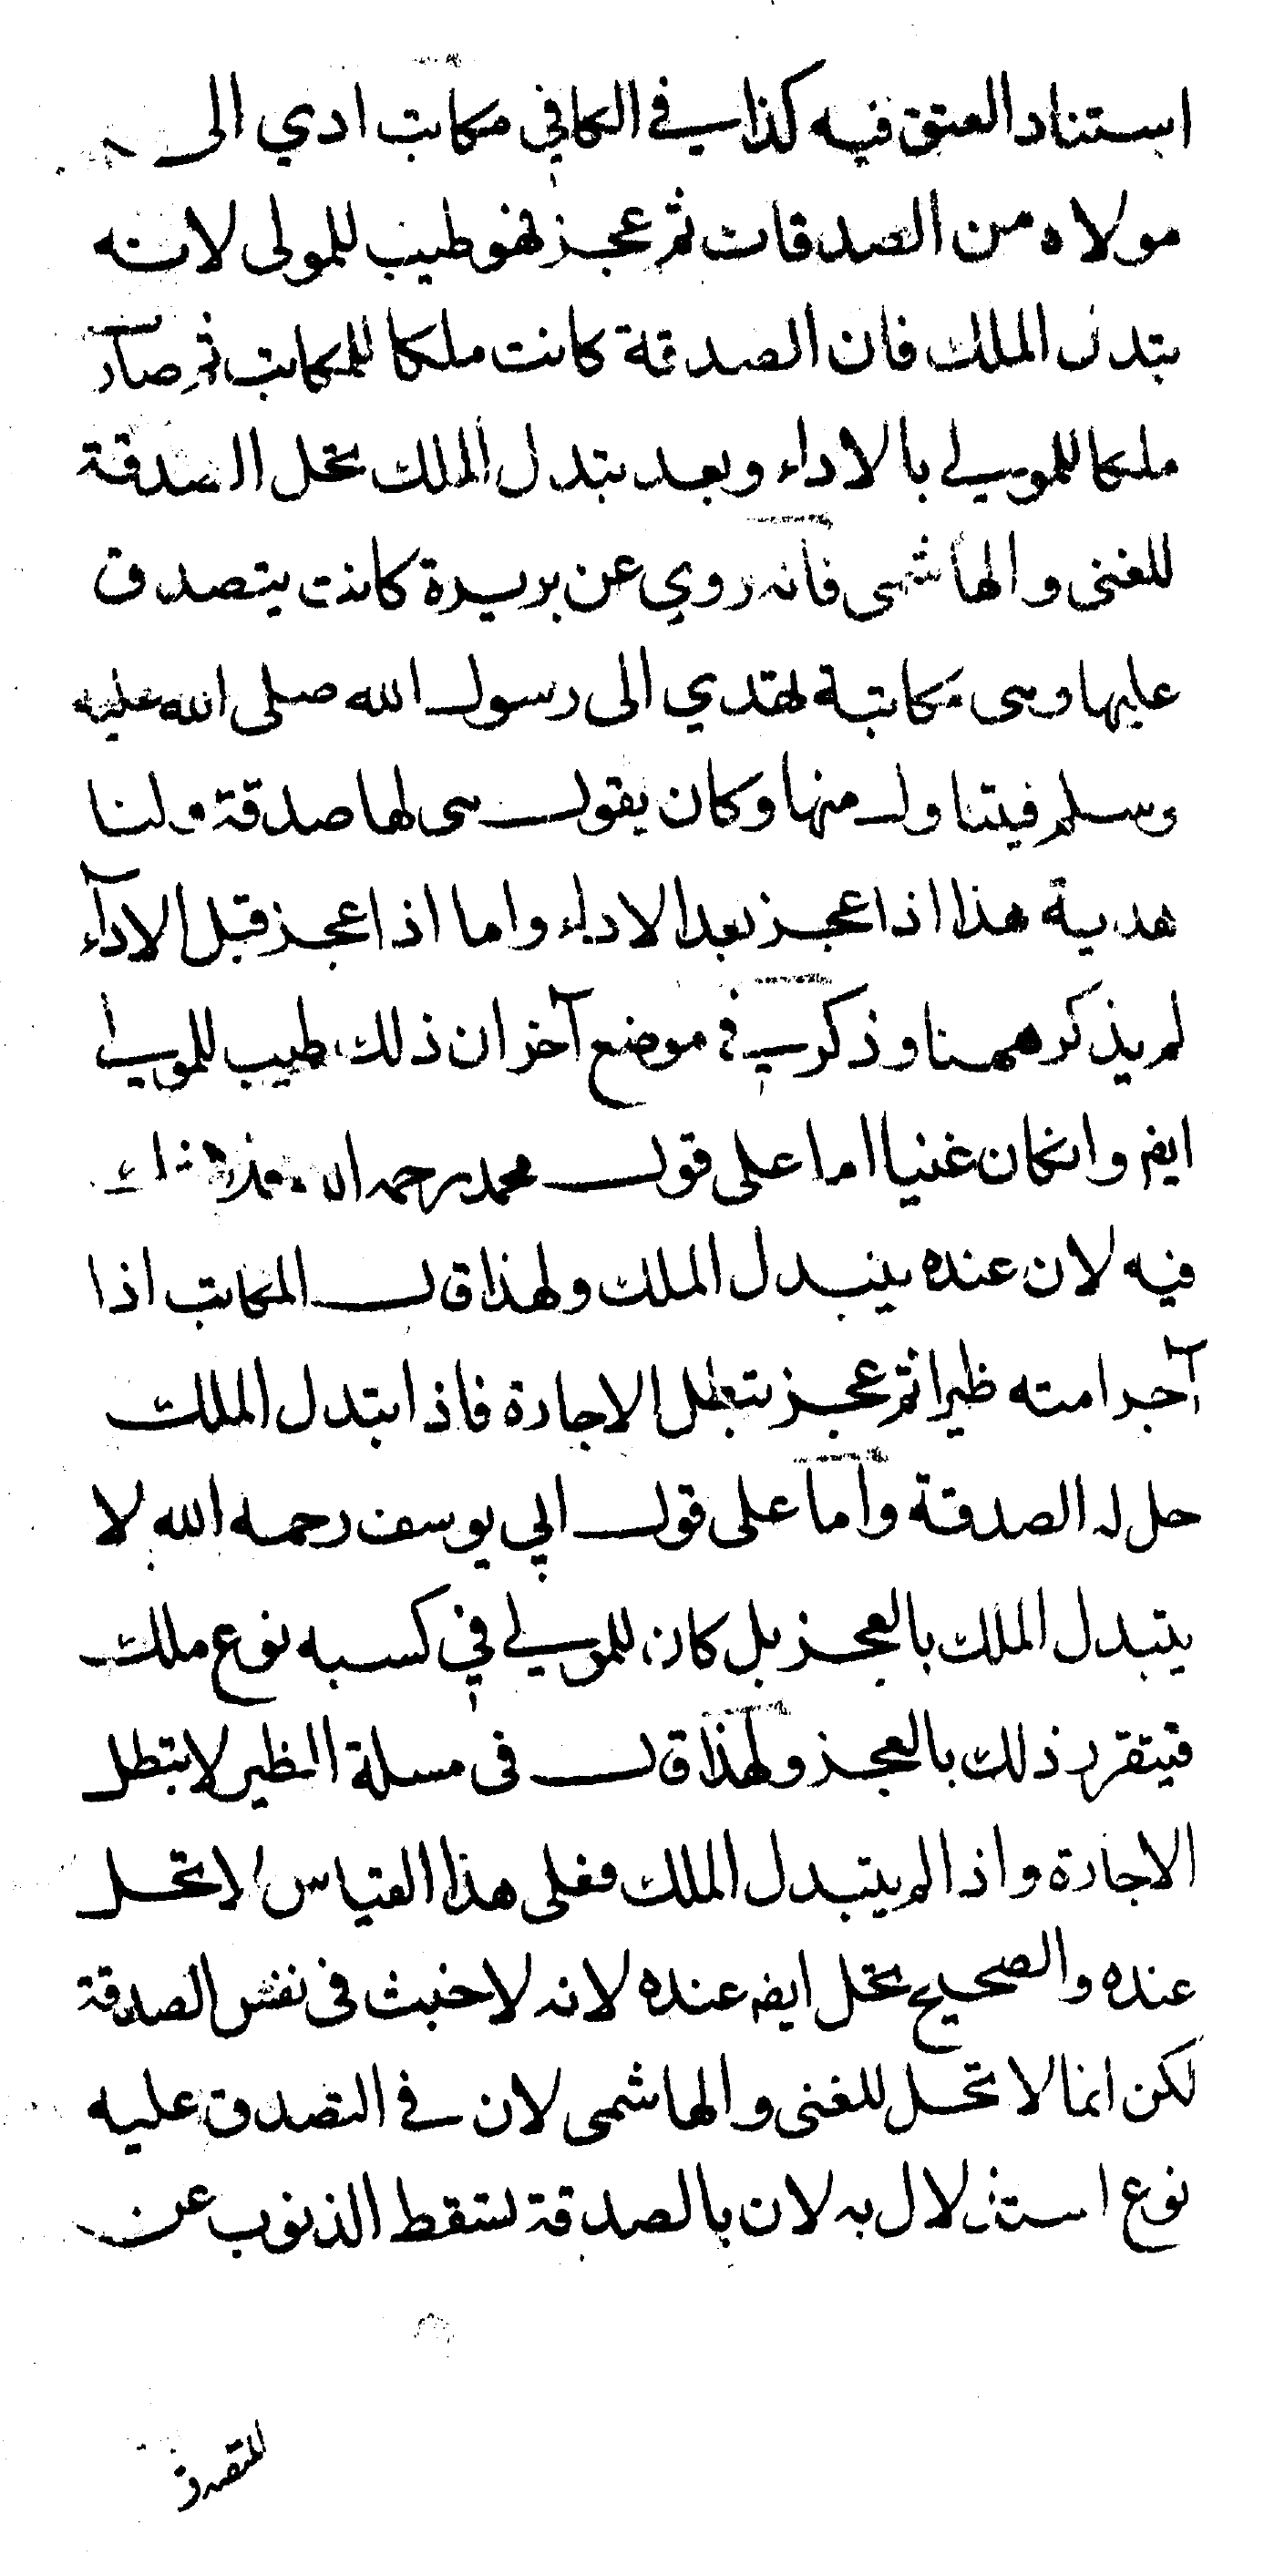 استناد العتق فيه كذا في الكافي مكاتب ادي الى
مولاه من الصدقات ثم عجز فهو طيب للمولى لانه
يتدل الملك فان الصدقة كانت ملكا للمكاتب ثم صآر
ملكا للمولى بالاداء وبعد تبدل الملك تحل الصدقة
للغنى والهاشمى فانه روي عن بريرة كانت يتصدق
عليها وهى مكاتبة تهدي الى رسول الله صلى الله عليه
وسلم فيتناول منها وكان يقول هى لها صدقة ولنا
هدية هذا اذا عجز بعد الاداء واما اذا عجز قبل الادآء
لم يذكر ههنا وذكر في موضع آخر ان ذلك طيب للمولى
ايضا وان كان غنيا اما على قول محمد رحمه الله فلا شك
فيه لان عنده يتبدل الملك ولهذا قال المكاتب اذا
آجر امته ظيرا ثم عجز تبطل الاجارة فاذا تبدل الملك
حل له الصدقة واما على قول ابي يوسف رحمه الله لا
يتبدل الملك بالعجز بل كان للمولى في كسبه نوع ملك
فيتقرر ذلك بالعجز ولهذا قال فى مسلة الظير لا تبطل
الاجارة واذا لم يتبدل الملك فعلى هذا القياس لا تحل
عنده والصحيح تحل ايضا عنده لانه لا خبث فى نفس الصدقة
لكن انما لا تحل للغنى والهاشمى لان في التصدق عليه
نوع استذلال به لان بالصدقة تسقط الذنوب عن
للتصدق